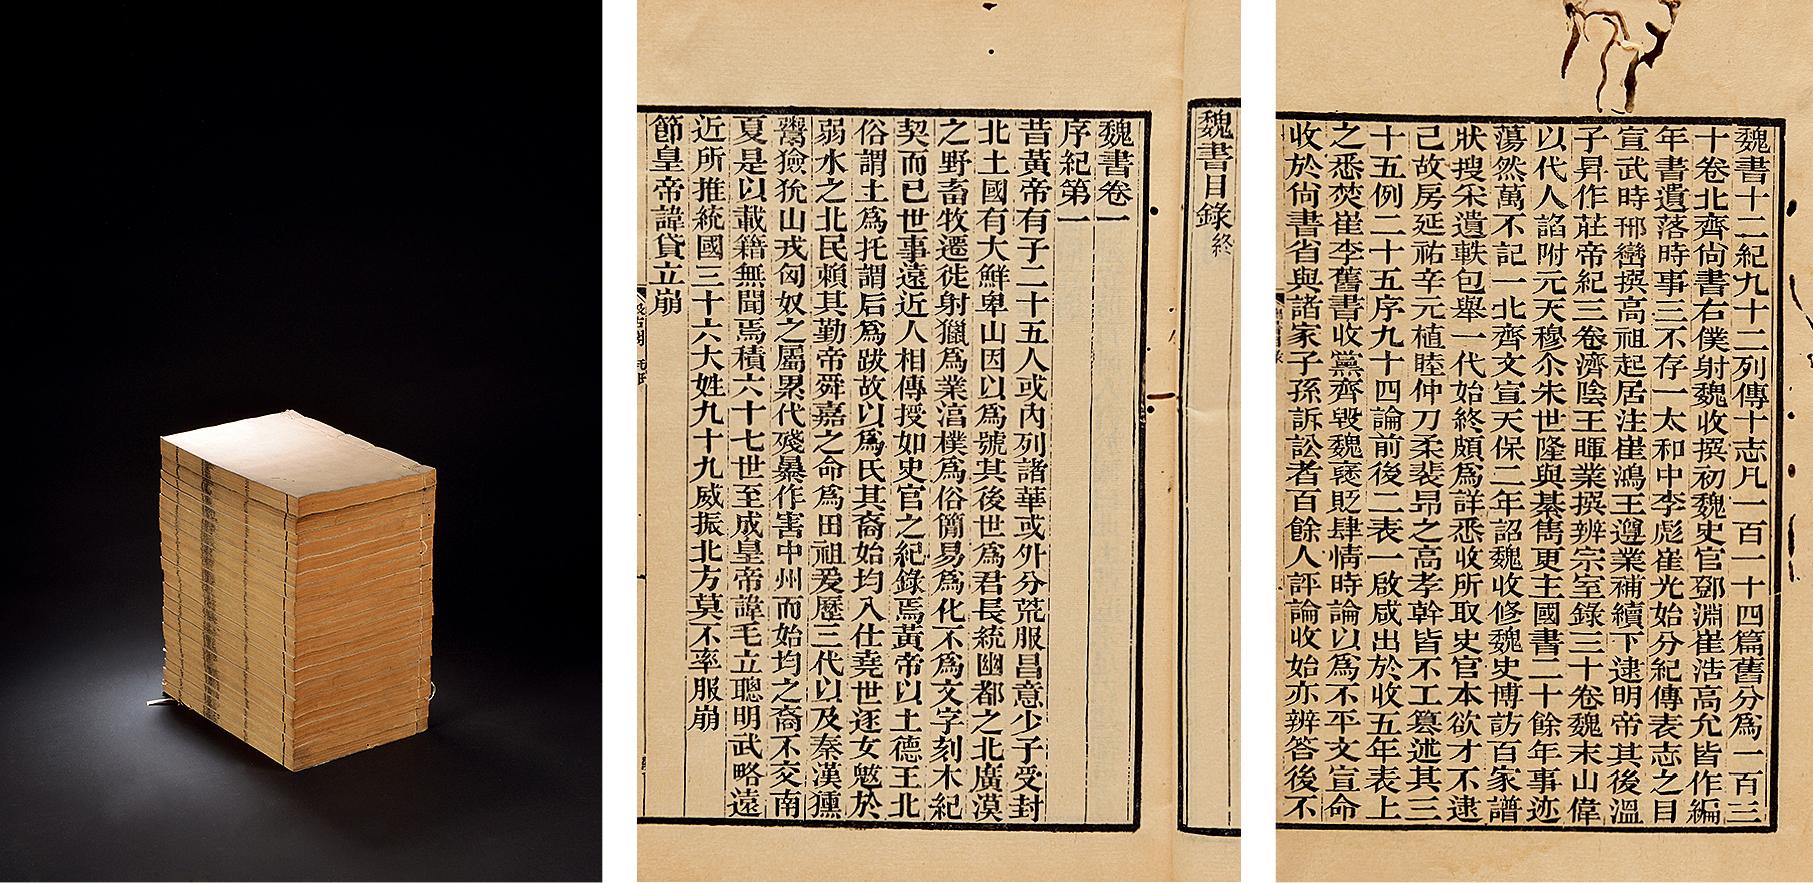 魏書十二紀九十二列傳十志凡一百一十四篇舊分爲一百三
十卷北齊尚書右僕射魏收撰初魏史官鄧淵崔浩高允皆作編
年書遺落時事三不存一太和中李彪崔光始分紀傳表志之目
宣武時邢巒撰高祖起居注崔鴻王遵業補續下逮明帝其後溫
子昇作莊帝紀三卷濟陰王暉業撰辨宗室錄三十卷魏末山偉
以代人諂附元天穆尒朱世隆與綦儁更主國書二十餘年事迹
蕩然萬不記一北齊文宣天保二年詔魏收修魏史博訪百家譜
狀搜采遺軼包舉一代始終頗爲詳悉收所取史官本欲才不逮
己故房延祐辛元植睦仲刀柔裴昂之高孝幹皆不工篡述其三
十五例二十五序九十四論前後二表一啟咸出於收五年表上
之悉焚崔李舊書收黨齊毀魏褒貶肆情時論以爲不平文宣命
收於尚書省與諸家子孫訴訟者百餘人評論收始亦辨答後不
魏書目錄終
魏書卷一
序紀第一
昔黃帝有子二十五人或內列諸華或外分荒服昌意少子受封
北土國有大鮮卑山因以爲號其後世爲君長統幽都之北廣漠
之野畜牧遷徙射獵爲業淳樸爲俗簡易爲化不爲文字刻木紀
契而已世事遠近人相傳授如史官之紀錄焉黃帝以土德王北
俗謂土爲托謂后爲跋故以爲氏其裔始均入仕堯世逐女魃於
弱水之北民賴其勤帝舜嘉之命爲田祖爰歷三代以及秦漢獯
鬻獫狁山戎匈奴之屬累代殘暴作害中州而始均之裔不交南
夏是以載籍無聞焉積六十七世至成皇帝諱毛立聰明武略遠
近所推統國三十六大姓九十九威振北方莫不率服崩
節皇帝諱貸立崩